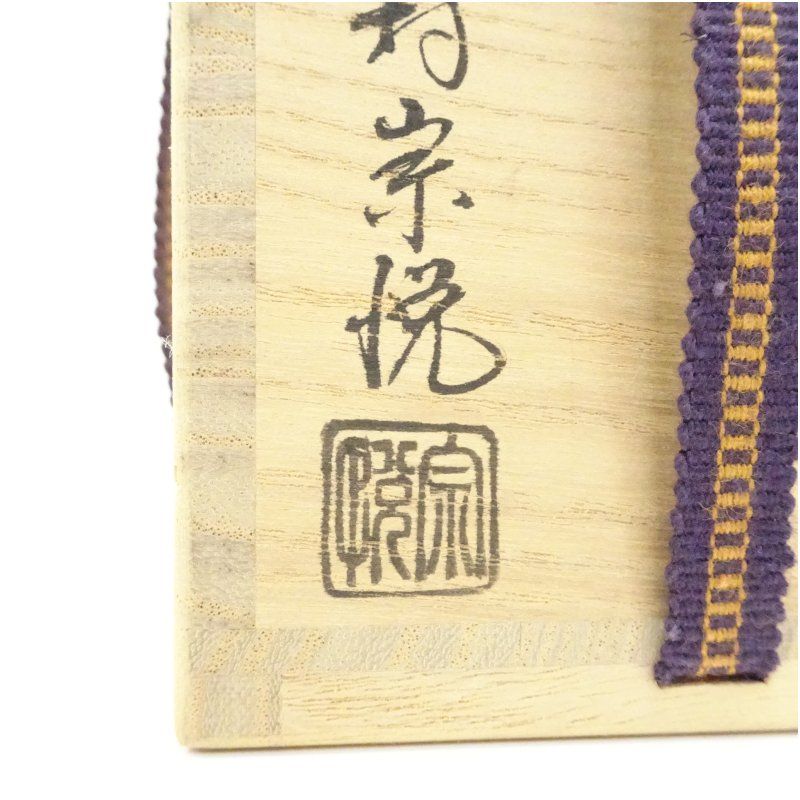 村宗悦
宗悦